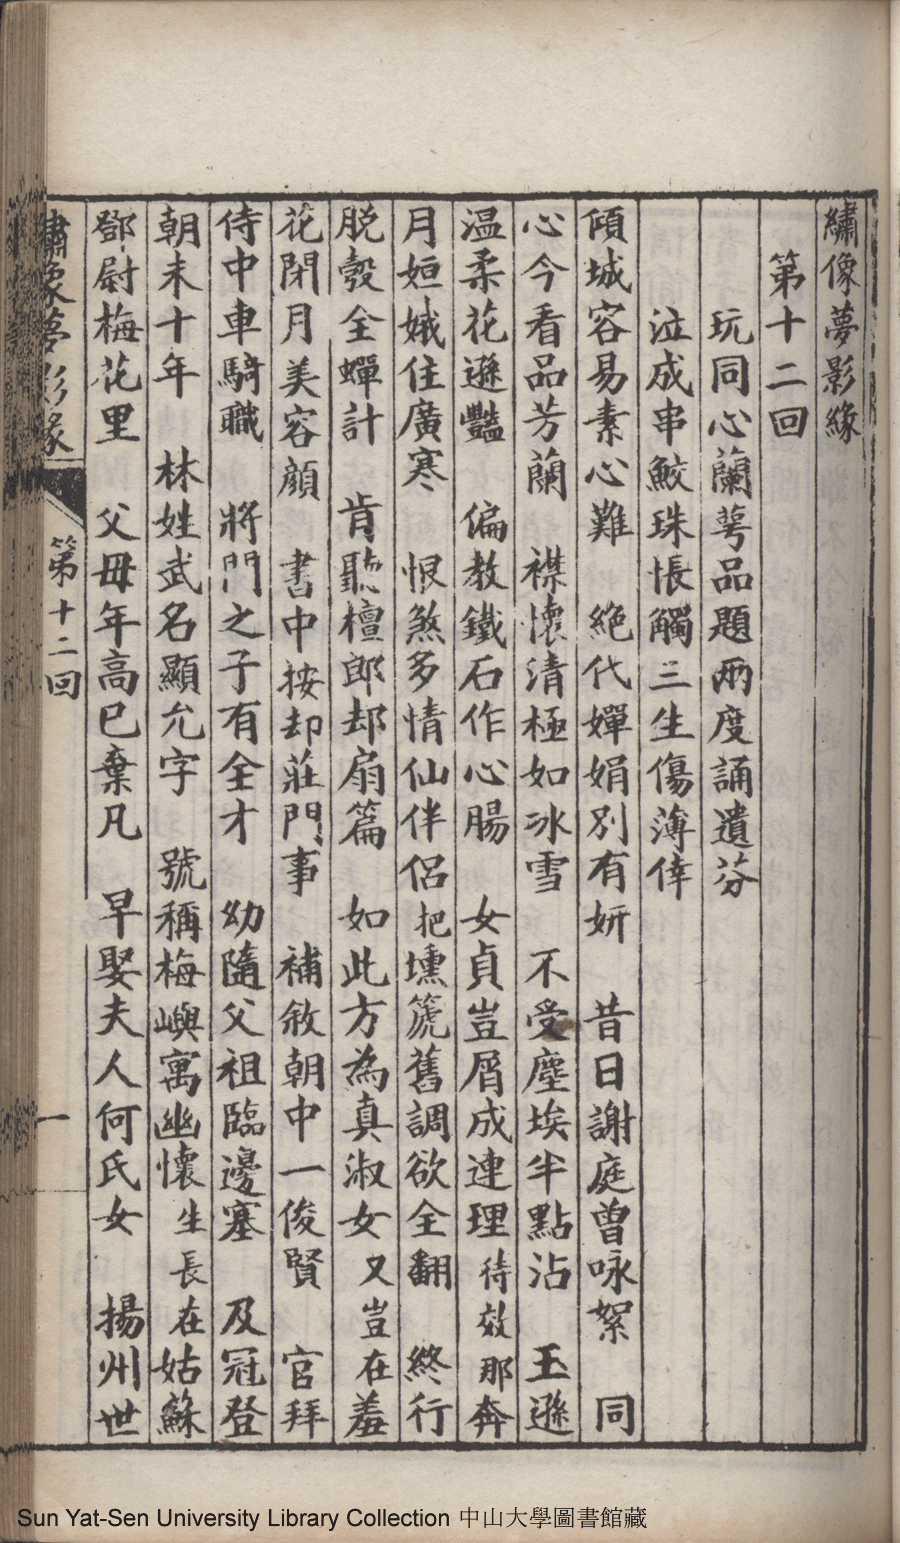 繡像夢影緣
第十二回
玩同心蘭萼品題兩度誦遺芬
泣成串鮫珠悵觸三生傷薄倖
傾城容易素心難　絕代嬋娟別有妍　昔日謝庭曾咏絮　同
心今看品芳蘭　襟懷清極如冰雪　不受塵埃半點沾　玉遜
温柔花遜豔　偏教鐵石作心腸　女貞豈屑成連理待效那奔
月姮娥住廣寒　恨煞多情仙伴侶把壎箎舊調欲全翻　終行
脱殼全蟬計　肯聽檀郎却扇篇　如此方為真淑女又豈在羞
花閉月美容顔　書中按却莊門事　補敘朝中一俊賢　官拜
侍中車騎職　將門之子有全才　幼隨父祖臨邊塞　及冠登
朝未十年　林姓武名顯允字　號稱梅嶼寓幽懷生長在姑蘇
鄧尉梅花里　父毋年高已棄凡　早娶夫人何氏女　揚州世
繡象夢影緣　第十二回　一
Sun Yat-Sen University Library Collection 中山大學圖書館藏